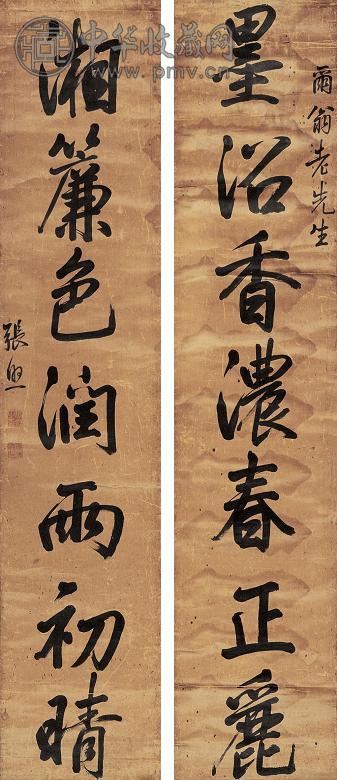 爾翁老先生
墨沼香濃春正麗
湘簾色潤雨初晴
張照
中华收藏网
www.pmv.cn